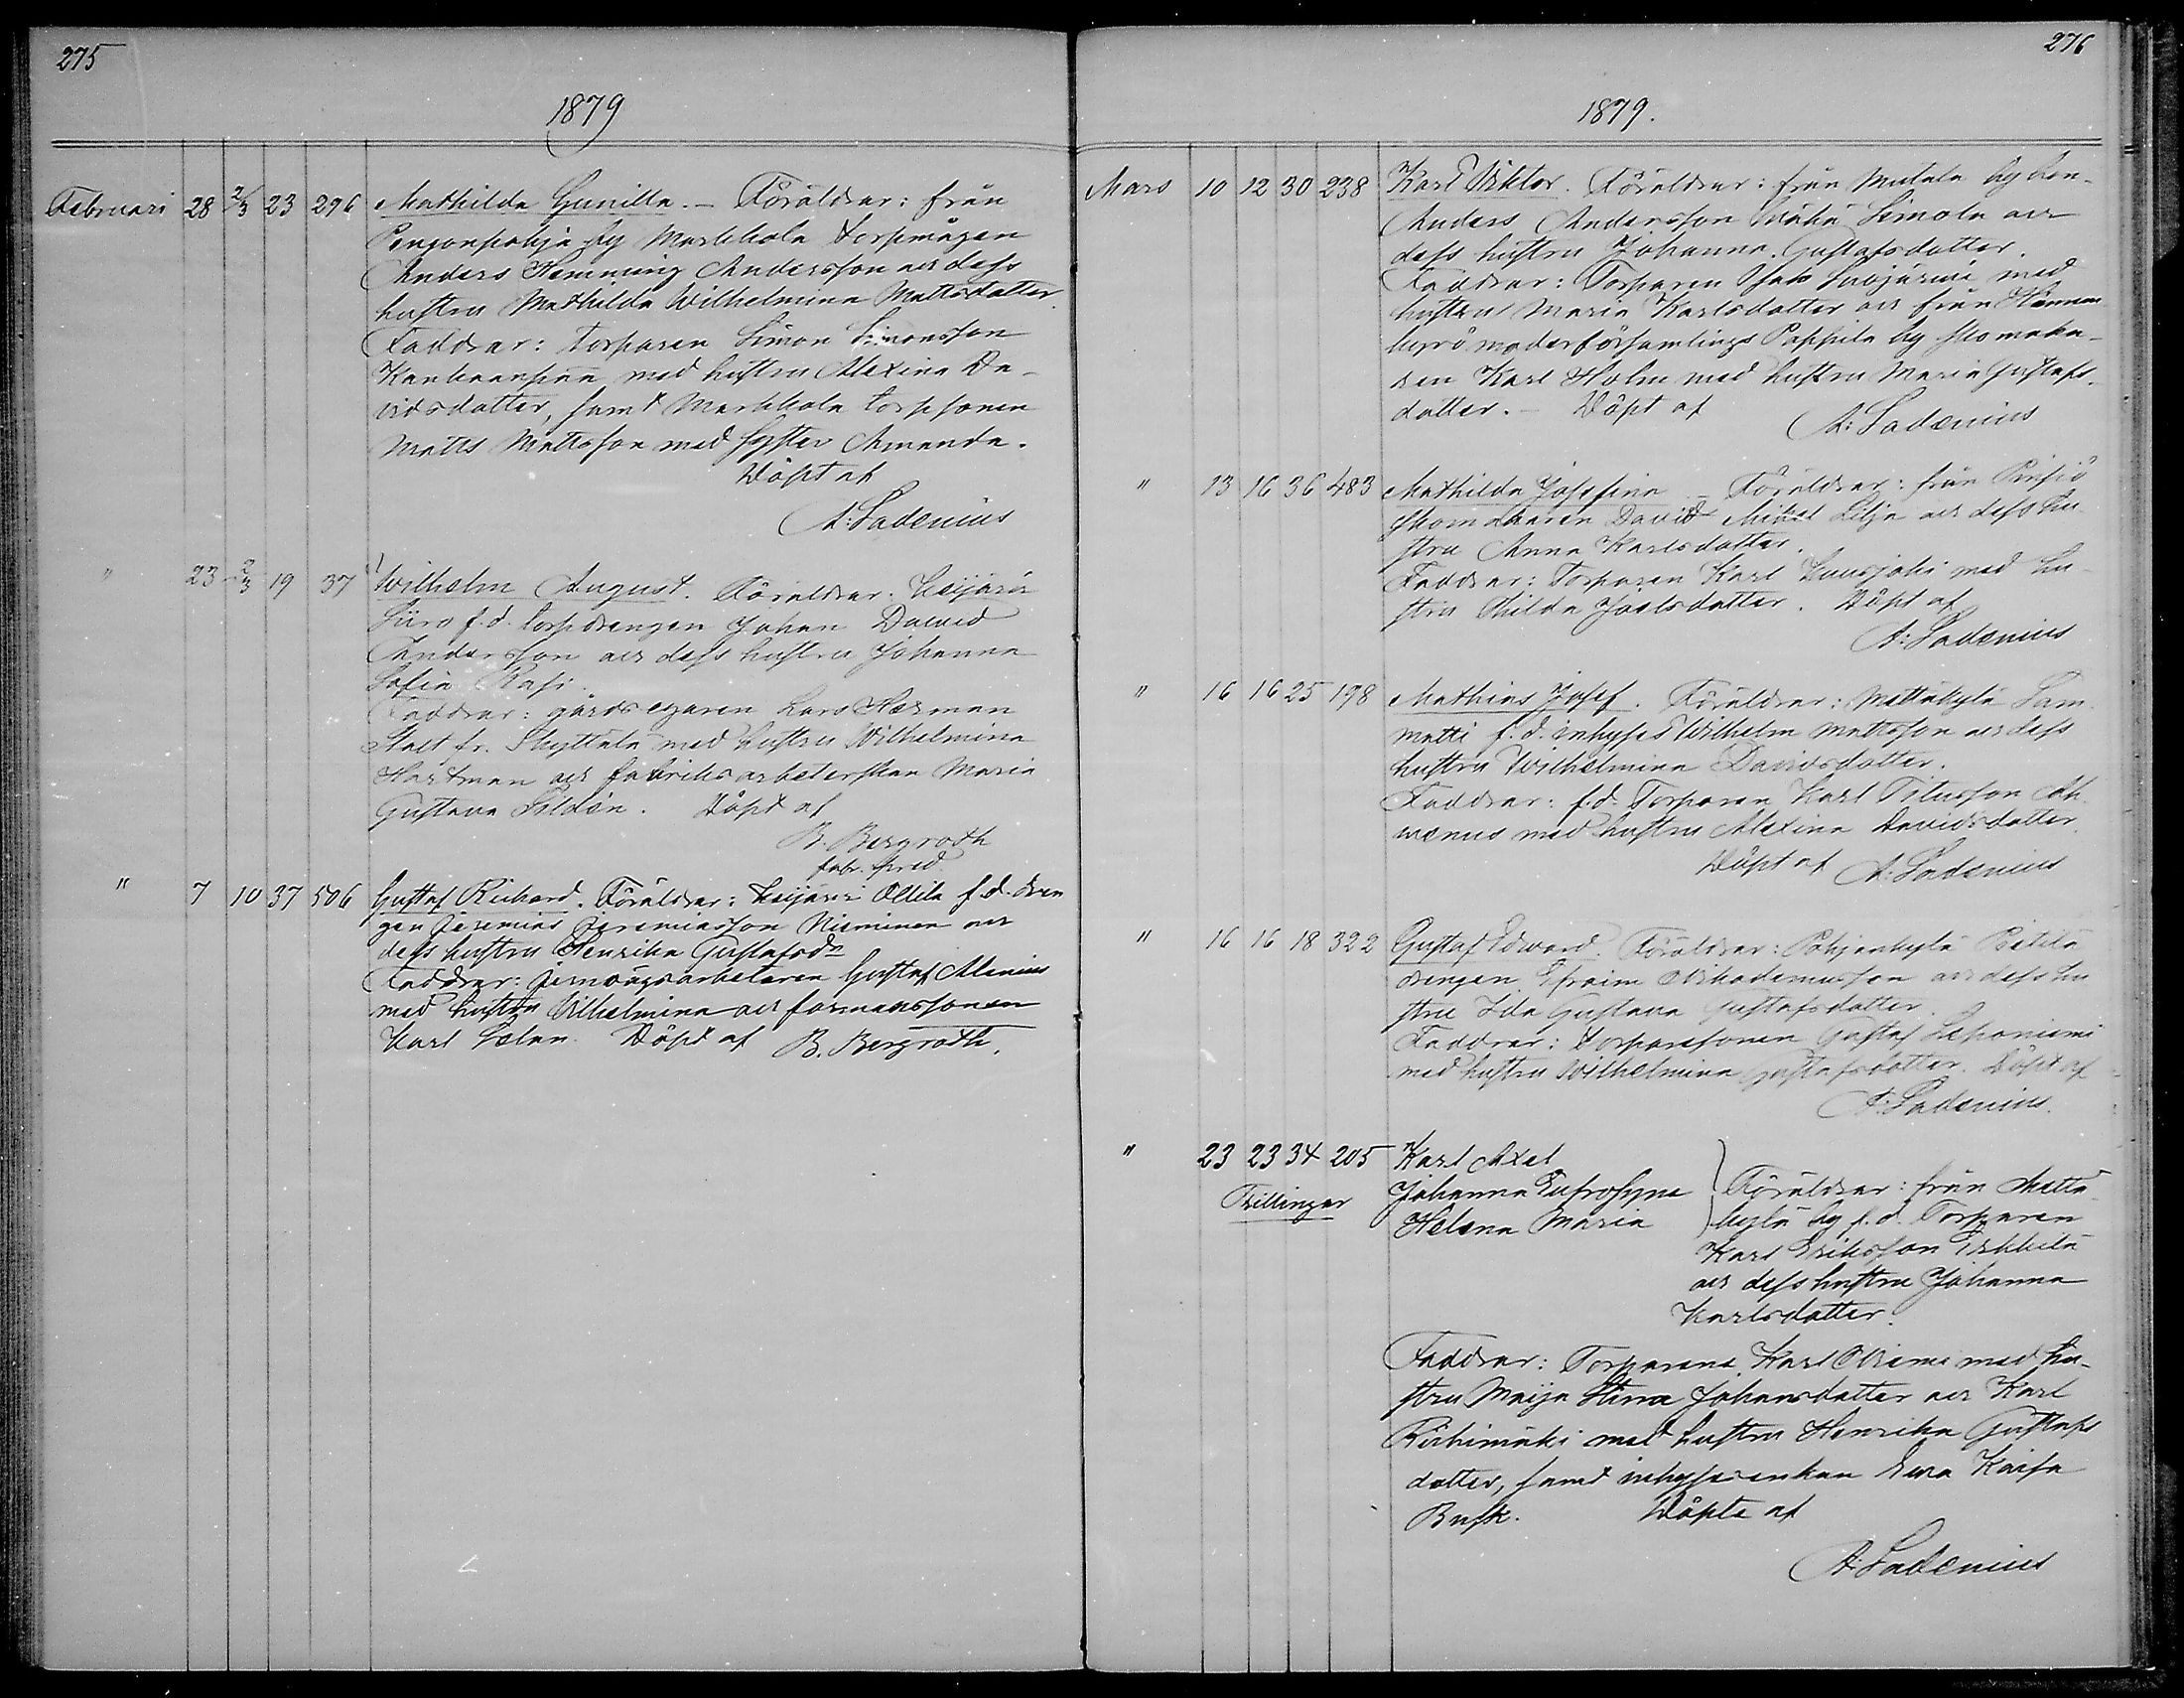 275
1879
Februari 28 2/3 23 296 Mathilda Gunilla. – Föräldrar: från
Pengonpohja by Markkola torpmågen
Anders Hemming Andersson och dess
hustru Mathilda Wilhelmina Mattsdotter.
Faddrar: torparen Simon Simonsson
med hustru Alexina Da-
vidsdotter, samt Markkola torpsonen
Matts Mattsson med syster Amanda.
Döpt af
A: Ladenius
" 23 2/3 19 37 Wilhelm August. Föräldrar: Leijäris
Siiro f. d. torpdrengen Johan David
Andersson och dess hustru Johanna
Sofia
Faddrar: gårdsegaren Lars Herman
Stalt fr. Skyttälä med hustru Wilhelmina
Hartman och fabriksarbeterskan Maria
Gustava Feldén. Döpt af
B. Bergroth
fabr. pred.
" 7 10 37 506 Gustaf Richard. Föräldrar: Leijäris Ollila f. d. dren
gen Jeremias Jeremiasson Nieminen och
dess hustru Henrika Gustafsdr
Faddrar: jernvägsarbetaren Gustaf Alenius
med hustru Wilhelmina och formanssonen
Karl Döpt af B. Bergroth.
276
1879.
Mars 10 12 30 238 Karl Viktor. Föräldrar: från Mutala by bon-
Anders Andersson Vähä Simola och
dess hustru Johanna Gustafsdotter.
Faddrar: Torparen Isak med
hustru Maria Karlsdotter och från
kyrö moderförsamlings Pappila by skomaka-
ren Karl Holm med hustru Maria Gustafs-
dotter. – Döpt af
A: Ladenius
" 13 16 36 483 Mathilda Josefina – Föräldrar: från
skomakaren David Mikel Lilja och dess hu-
stru Anna Karlsdotter.
Faddrar: Torparen Karl med hu-
stru Thilda Joelsdotter. Döpt af
A: Ladenius
" 16 16 25 198 Mathias Josef. Föräldrar: Mettäkylä Lam
matti f. d. inhyses Wilhelm Mattsson och dess
hustru Wilhelmina Davidsdotter.
Faddrar: f. d. Torparen Karl Titusson Ah
venus med hustru Alexina Davidsdotter.
Döpt af A: Ladenius
" 16 16 18 322 Gustaf Edvard. Föräldrar: Pohjankylä
drengen Efraim Nikodemusson och dess hu
stru Ida Gustava Gustafsdotter.
Faddrar: Torparesonen Gustaf Leponiemi
med hustru Wilhelmina Gustafsdotter. Döpt af
A: Ladenius.
" 23 23 34 205 Karl Axel
Trillingar Johanna Eufrosyne Föräldrar: från Mettä
Helena Maria kylä by f. d. Torparen
Karl Eriksson Erkkilä
och dess hustru Johanna
Karlsdotter.
Faddrar: Torparena Karl med hu-
stru Maija Stina Johansdotter och Karl
Riihimäki med hustru Henrika Gustafs
dotter, samt inhysesenkan Eva Kaisa
Busk. Döpta af
A: Ladenius